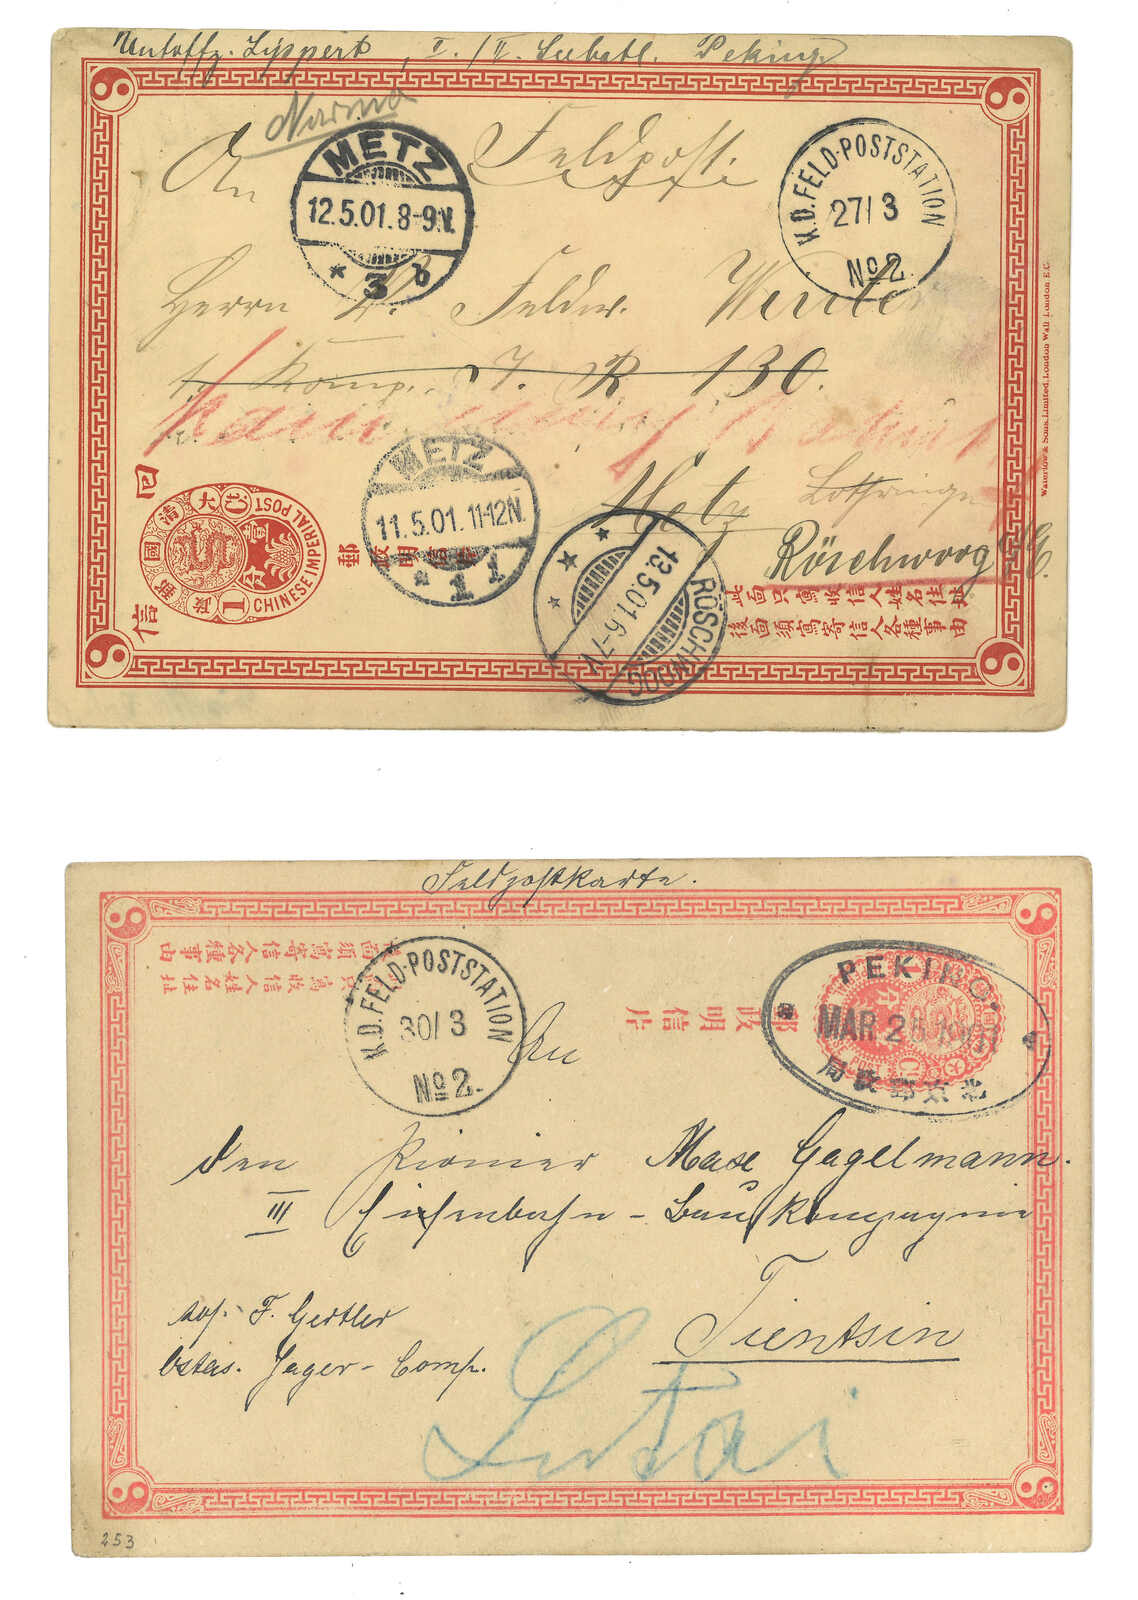 Untoffz. Lippert, I./II. Seebatl. Peking
An Feldpost.
METZ
12.5.01.8-9.V.
* 3 b
K.D.FELD-POSTSTATION
27/3
No 2.
Herrn Feldw.
Komp. J. R. 130.
METZ
11.5.01.11-12N.
* 1 1
Metz Lothringen
Röschwoog
RÖSCHWOOG
13.5.01.6-7V.
* * *
大清國郵政
CHINESE IMPERIAL POST
1 Ct
壹分
郵政明信片
此面只寫收信人姓名住址
後面須寫寄信人各種事由
Waterlow & Sons Limited, London Wall London E.C.
Feldpostkarte.
後面須寫寄信人各種事由
此面只寫收信人姓名住址
郵政明信片
K.D.FELD-POSTSTATION
30/3
No 2.
PEKING.
MAR 25 1901
北京郵政局
An
den Pionier Maxe Gagelmann.
III Eisenbahn-Baukompagnie
Tientsin
F. Gertler
Ostas. Jäger-Comp.
Lutai
253